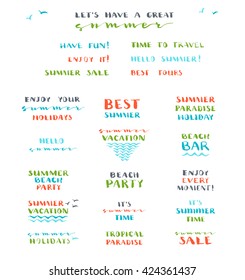 LET'S HAVE A GREAT
summer
HAVE FUN! TIME TO TRAVEL
ENJOY IT! HELLO SUMMER!
SUMMER SALE BEST TOURS
ENJOY YOUR
summer
HOLIDAYS
BEST
SUMMER
SUMMER
PARADISE
HOLIDAY
HELLO
summer
summer
VACATION
BEACH
BAR
SUMMER
BEACH
PARTY
BEACH
PARTY
ENJOY
EVERY
MOMENT!
summer
VACATION
IT'S
summer
TIME
IT'S
SUMMER
TIME
summer
HOLIDAYS
TROPICAL
PARADISE
summer
SALE
shutterstock
IMAGE ID: 424361437
www.shutterstock.com